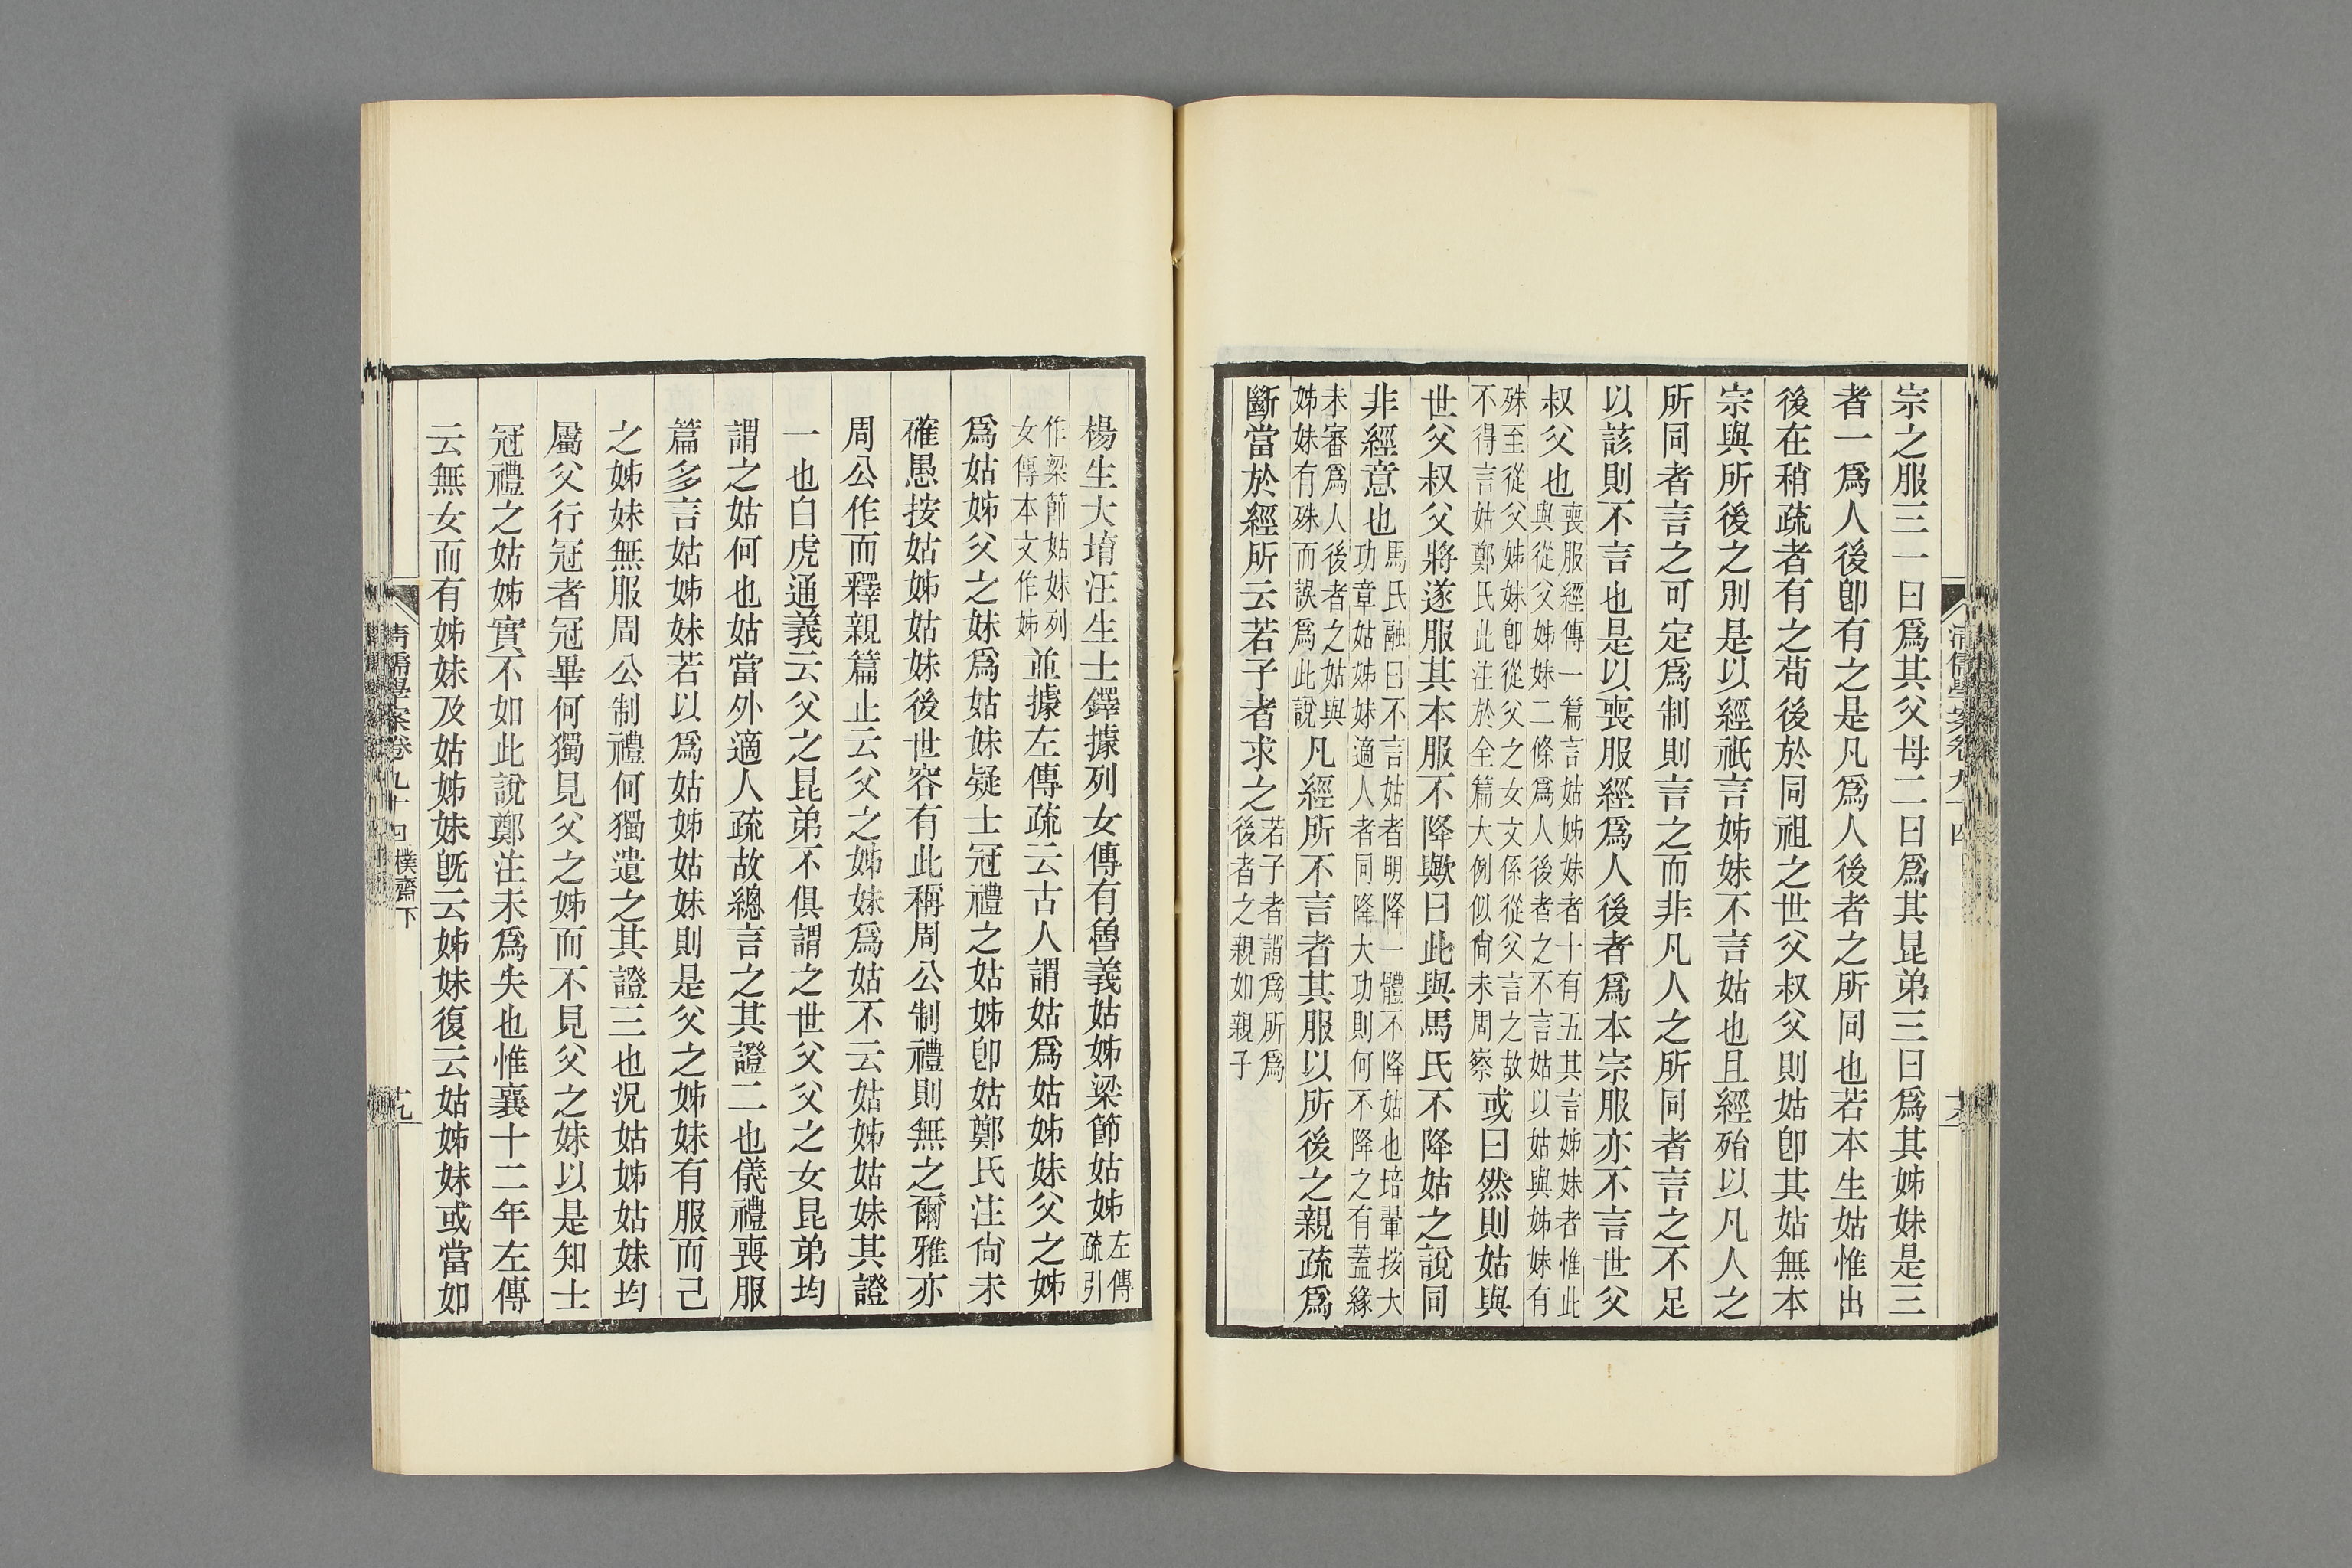 宗之服三一曰爲其父母二曰爲其昆弟三曰爲其姊妹是三
者一爲人後卽有之是凡爲人後者之所同也若本生姑惟出
後在稍疏者有之苟後於同祖之世父叔父則姑卽其姑無本
宗與所後之別是以經祇言姊妹不言姑也且經殆以凡人之
所同者言之可定爲制則言之而非凡人之所同者言之不足
以該則不言也是以喪服經爲人後者爲本宗服亦不言世父
叔父也喪服經傳一篇言姑姊妹者十有五其言姊妹者惟此與從父姊妹二條爲人後者之不言姑以姑與姊妹有
殊至從父姊妹卽從父之女文係從父言之故不得言姑鄭氏此注於全篇大例似尙未周察或曰然則姑與
世父叔父將遂服其本服不降歟曰此與馬氏不降姑之說同
非經意也馬氏融曰不言姑者明降一體不降姑也培翬按大功章姑姊妹適人者同降大功則何不降之有蓋緣
未審爲人後者之姑與姊妹有殊而誤爲此說凡經所不言者其服以所後之親疏爲
斷當於經所云若子者求之若子者謂爲所爲後者之親如親子
清儒學案卷九十四
十八
楊生大堉汪生士鐸據列女傳有魯義姑姊梁節姑姊左傳疏引
作梁節姑妹列女傳本文作姊並據左傳疏云古人謂姑爲姑姊妹父之姊
爲姑姊父之妹爲姑妹疑士冠禮之姑姊卽姑鄭氏注尙未
確愚按姑姊姑妹後世容有此稱周公制禮則無之爾雅亦
周公作而釋親篇止云父之姊妹爲姑不云姑姊姑妹其證
一也白虎通義云父之昆弟不俱謂之世父父之女昆弟均
謂之姑何也姑當外適人疏故總言之其證二也儀禮喪服
篇多言姑姊妹若以爲姑姊姑妹則是父之姊妹有服而己
之姊妹無服周公制禮何獨遺之其證三也況姑姊姑妹均
屬父行冠者冠畢何獨見父之姊而不見父之妹以是知士
冠禮之姑姊實不如此說鄭注未爲失也惟襄十二年左傳
云無女而有姊妹及姑姊妹旣云姊妹復云姑姊妹或當如
清儒學案卷九十四 樸齋下
十九